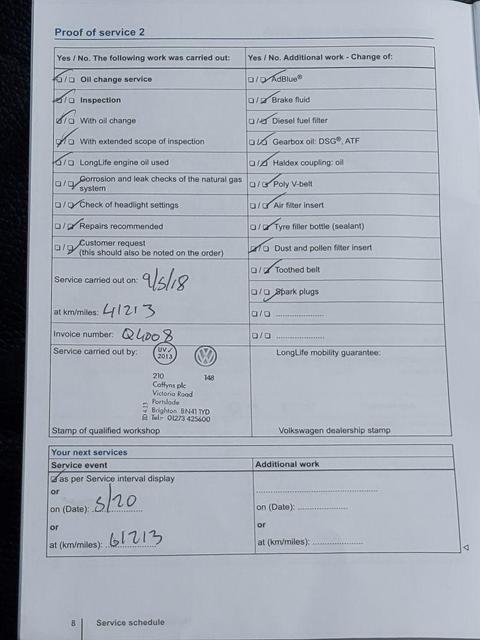 Proof of service 2
Yes / No. The following work was carried out:
Yes / No. Additional work - Change of:
Oil change service
AdBlue®
Inspection
Brake fluid
With oil change
Diesel fuel filter
With extended scope of inspection
Gearbox oil: DSG®, ATF
LongLife engine oil used
Haldex coupling: oil
Corrosion and leak checks of the natural gas
system
Poly V-belt
Check of headlight settings
Air filter insert
Repairs recommended
Tyre filler bottle (sealant)
Customer request
(this should also be noted on the order)
Dust and pollen filter insert
Toothed belt
Service carried out on: 9/5/18
Spark plugs
at km/miles: 41213
Invoice number: Q4008
Service carried out by:
LongLife mobility guarantee:
UV✓
2013
210 148
Caffyns plc
Victoria Road
Portslade
Brighton BN41 1YD
Tel:- 01273 425600
Stamp of qualified workshop
Volkswagen dealership stamp
Your next services
Service event
Additional work
as per Service interval display
or
on (Date): 5/20
on (Date):
or
or
at (km/miles): 61213
at (km/miles):
8 Service schedule